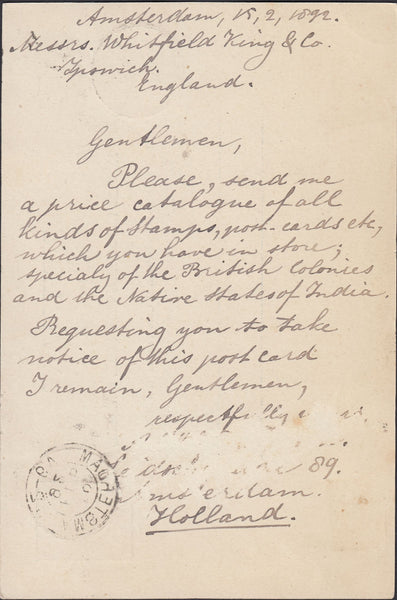 Amsterdam, 15, 2, 1892.
Messrs. Whitfield King & Co.
Ipswich.
England.
Gentlemen,
Please, send me
a price catalogue of all
kinds of Stamps, post-cards etc,
which you have in store;
specialy of the British Colonies
and the Native States of India.
Requesting you to take
notice of this post card
I remain, Gentlemen,
respectfully
89.
Amsterdam.
Holland.